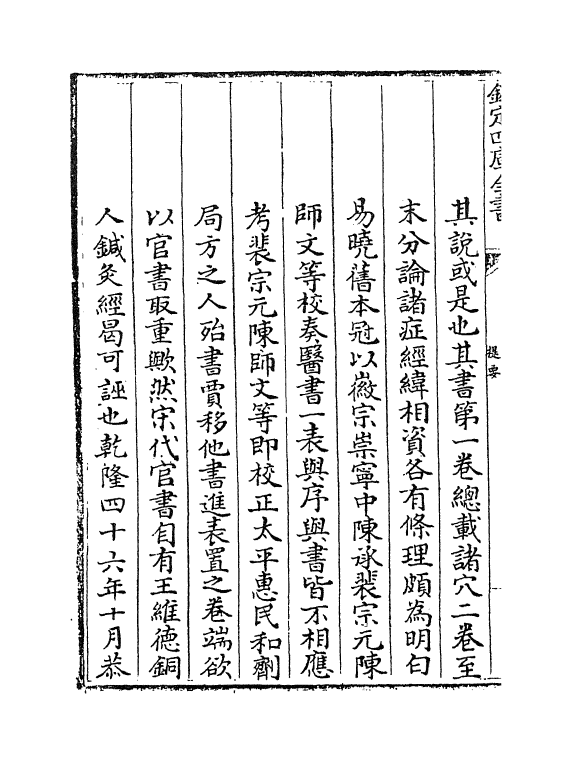 欽定四庫全書
提要
其說或是也其書第一卷總載諸穴二卷至
末分論諸症經緯相資各有條理頗為明白
易曉舊本冠以徽宗崇寧中陳承裴宗元陳
師文等校奏醫書一表與序與書皆不相應
考裴宗元陳師文等即校正太平惠民和劑
局方之人殆書賈移他書進表置之卷端欲
以官書取重歟然宋代官書自有王維德銅
人鍼灸經曷可誣也乾隆四十六年十月恭